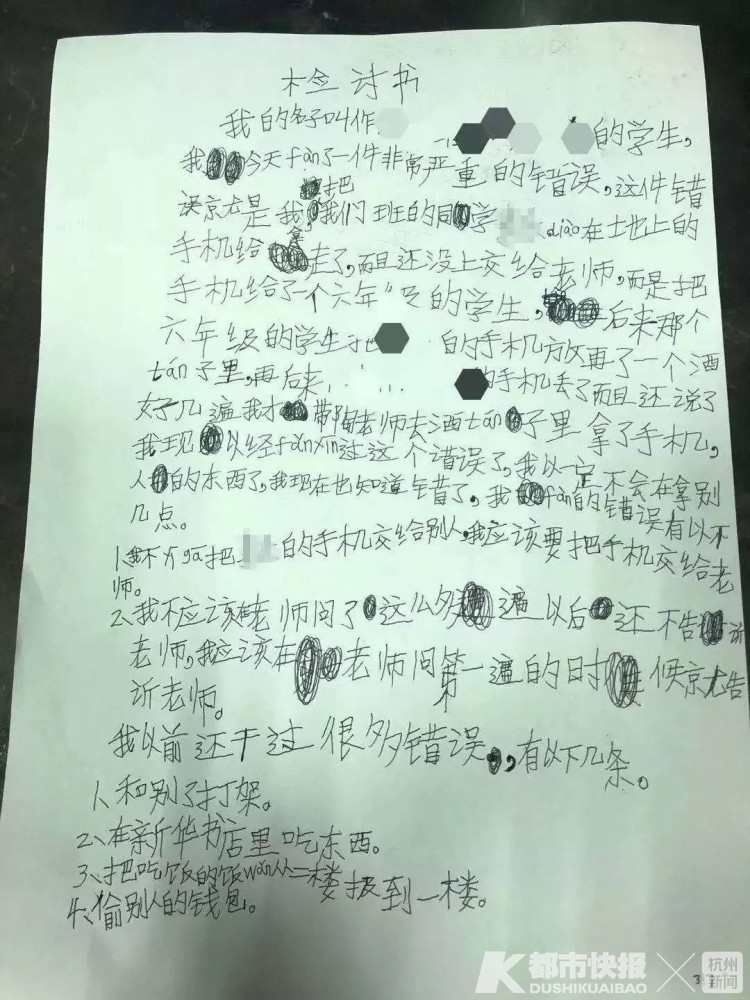 检讨书
我的名子叫作 的学生，
我今天fàn了一件非常严重的错误，这件错
误就是我把我们班的同学 diào在土地上的
手机给拿走了，而且还没上交给老师，而是把
手机给了一个六年级的学生，后来那个
六年级的学生把 的手机放再了一个酒
tán子里，再后来 的手机丢了而且还说了
好几遍我才带陶老师去酒tán子里拿了手机，
我现以经fǎnxǐn过这个错误了，我以一定不会在拿别
人的东西了，我现在也知道错了，我fàn的错误有以不
几点。
1、我不yīgāi把 的手机交给别人，我应该要把手机交给老
师。
2、我不应该在老师问了这么多遍以后还不告诉
老师，我应该在老师问第一遍的时候就告
诉老师。
我以前还干过很多错误，有以下几条。
1、和别了打架。
2、在新华书店里吃东西。
3、把吃饭的饭wǎn从二楼扱到一楼。
4、偷别人的钱包。
都市快报
DUSHIKUAIBAO
杭州
新闻